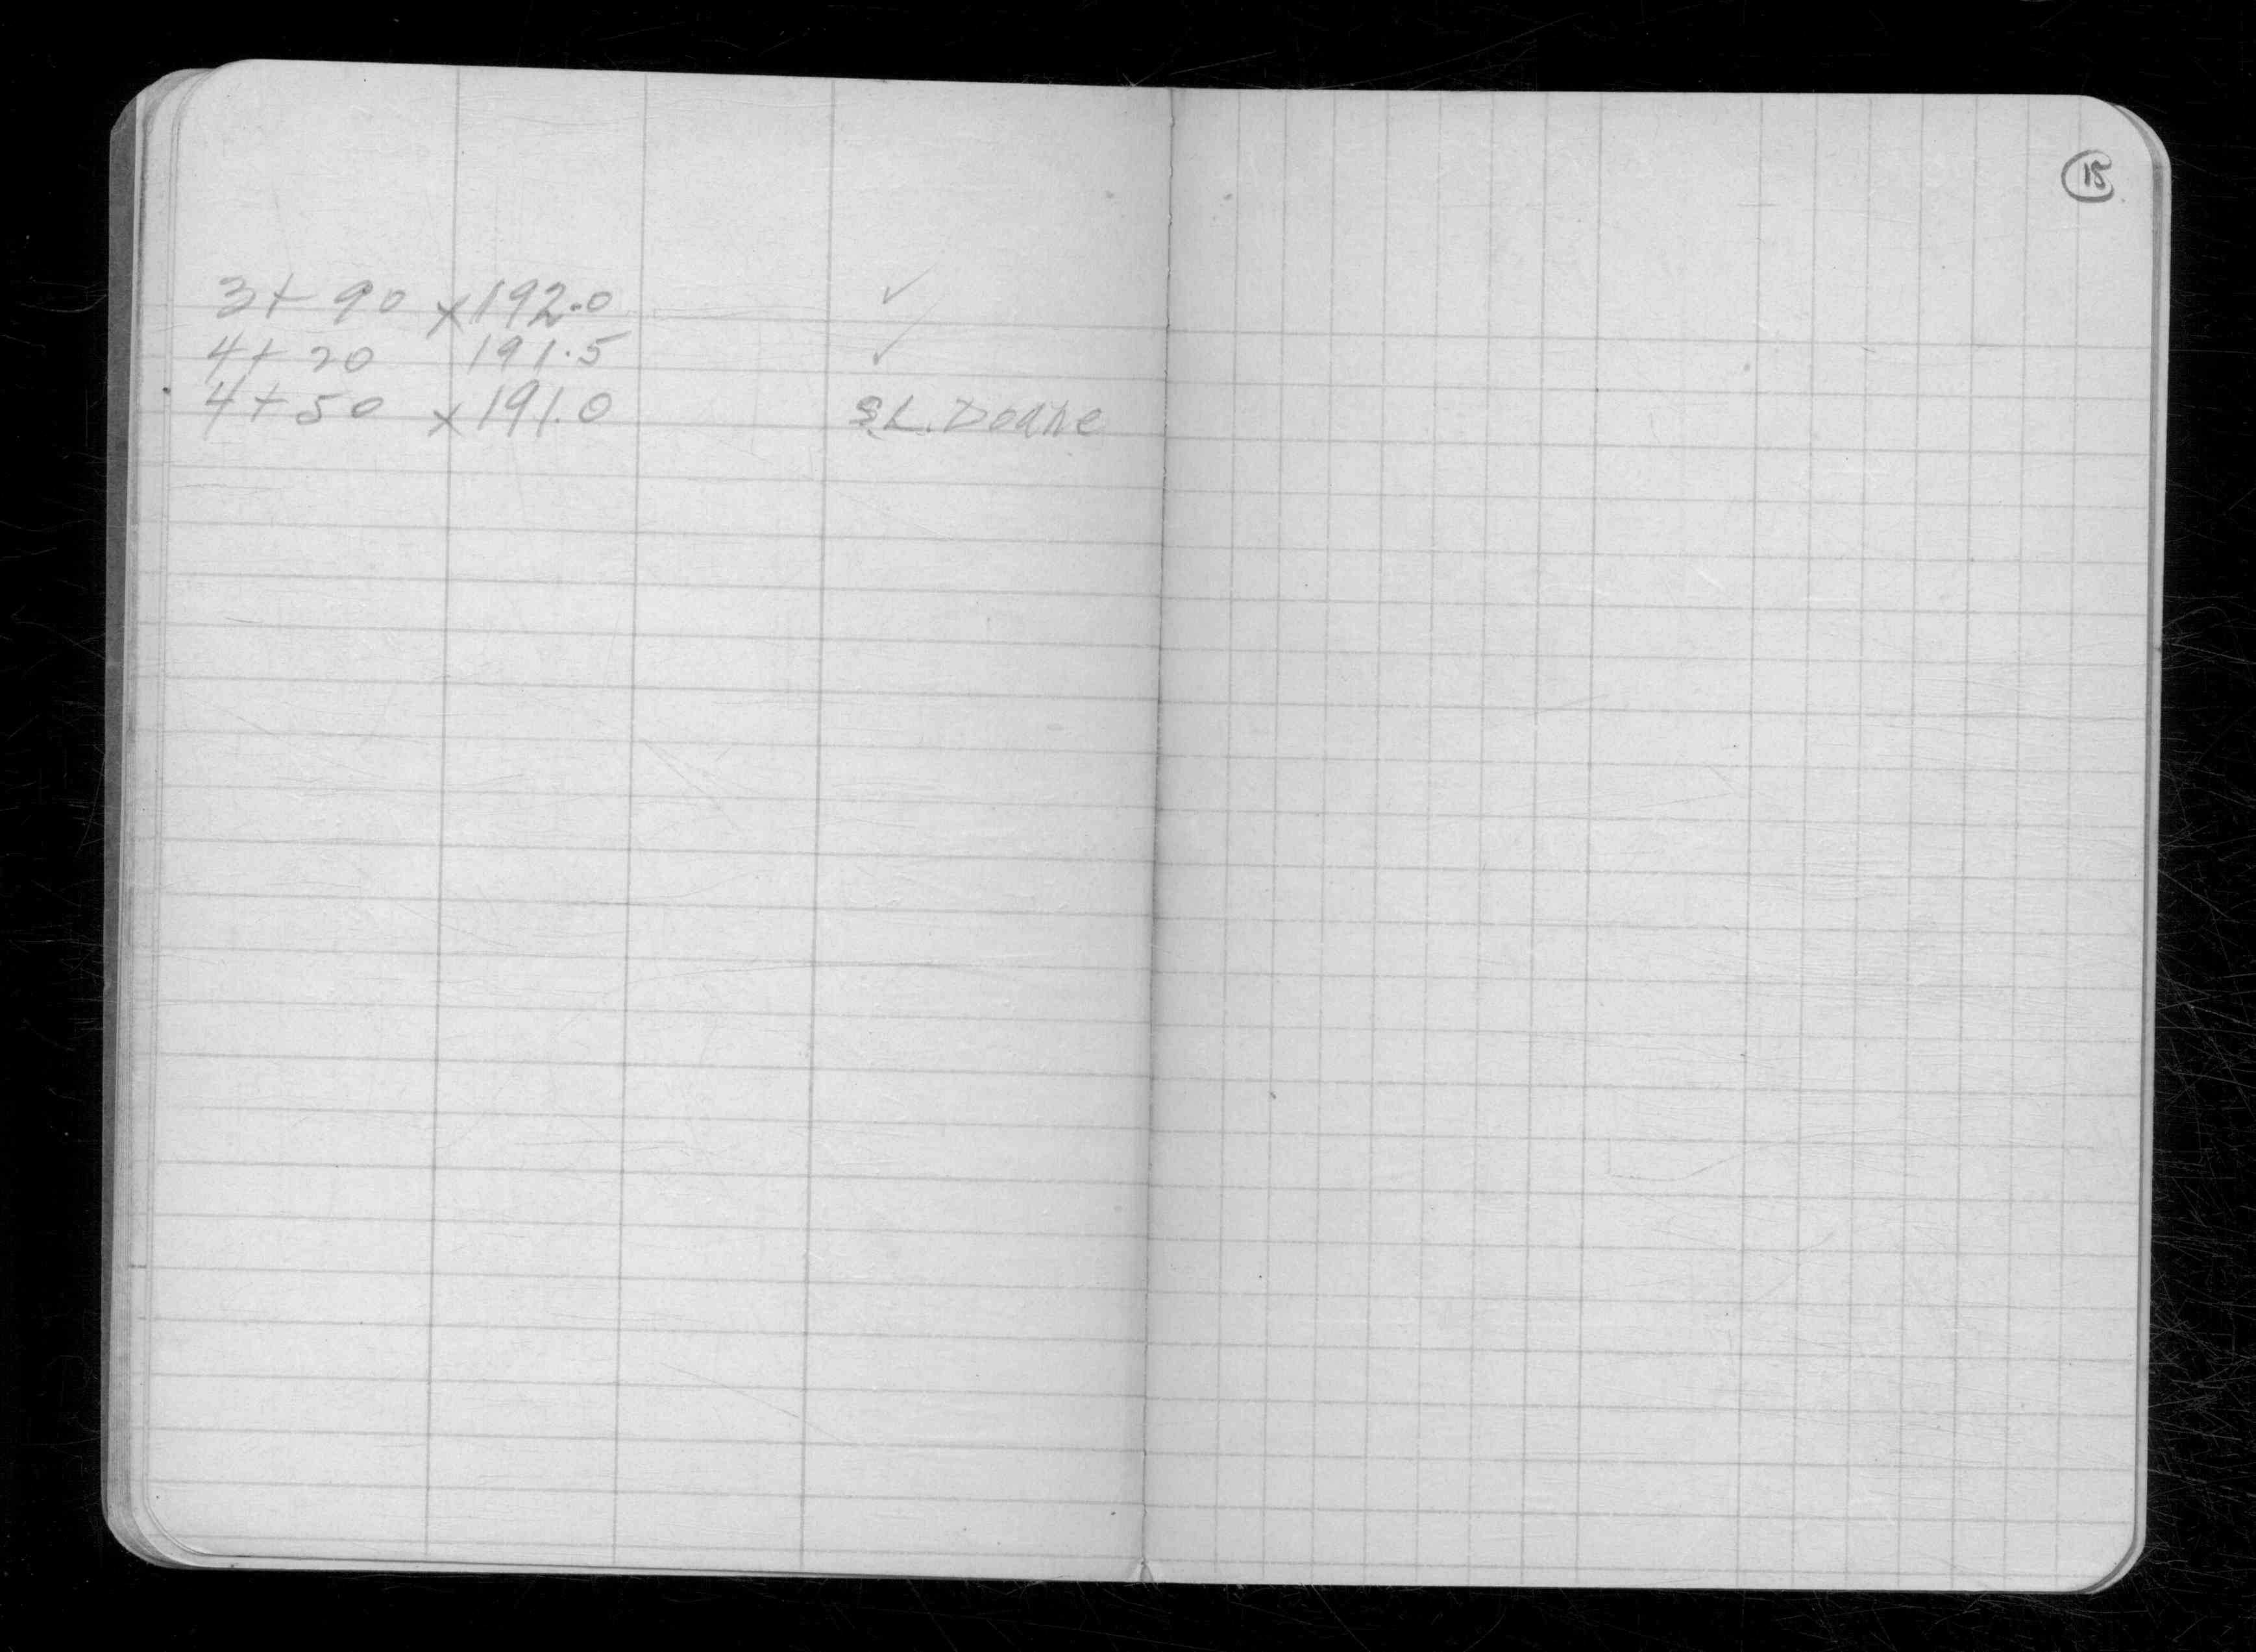 15
3+90 x192.0 ✓
4+20 191.5 ✓
4+50 x191.0 S.L. Doane